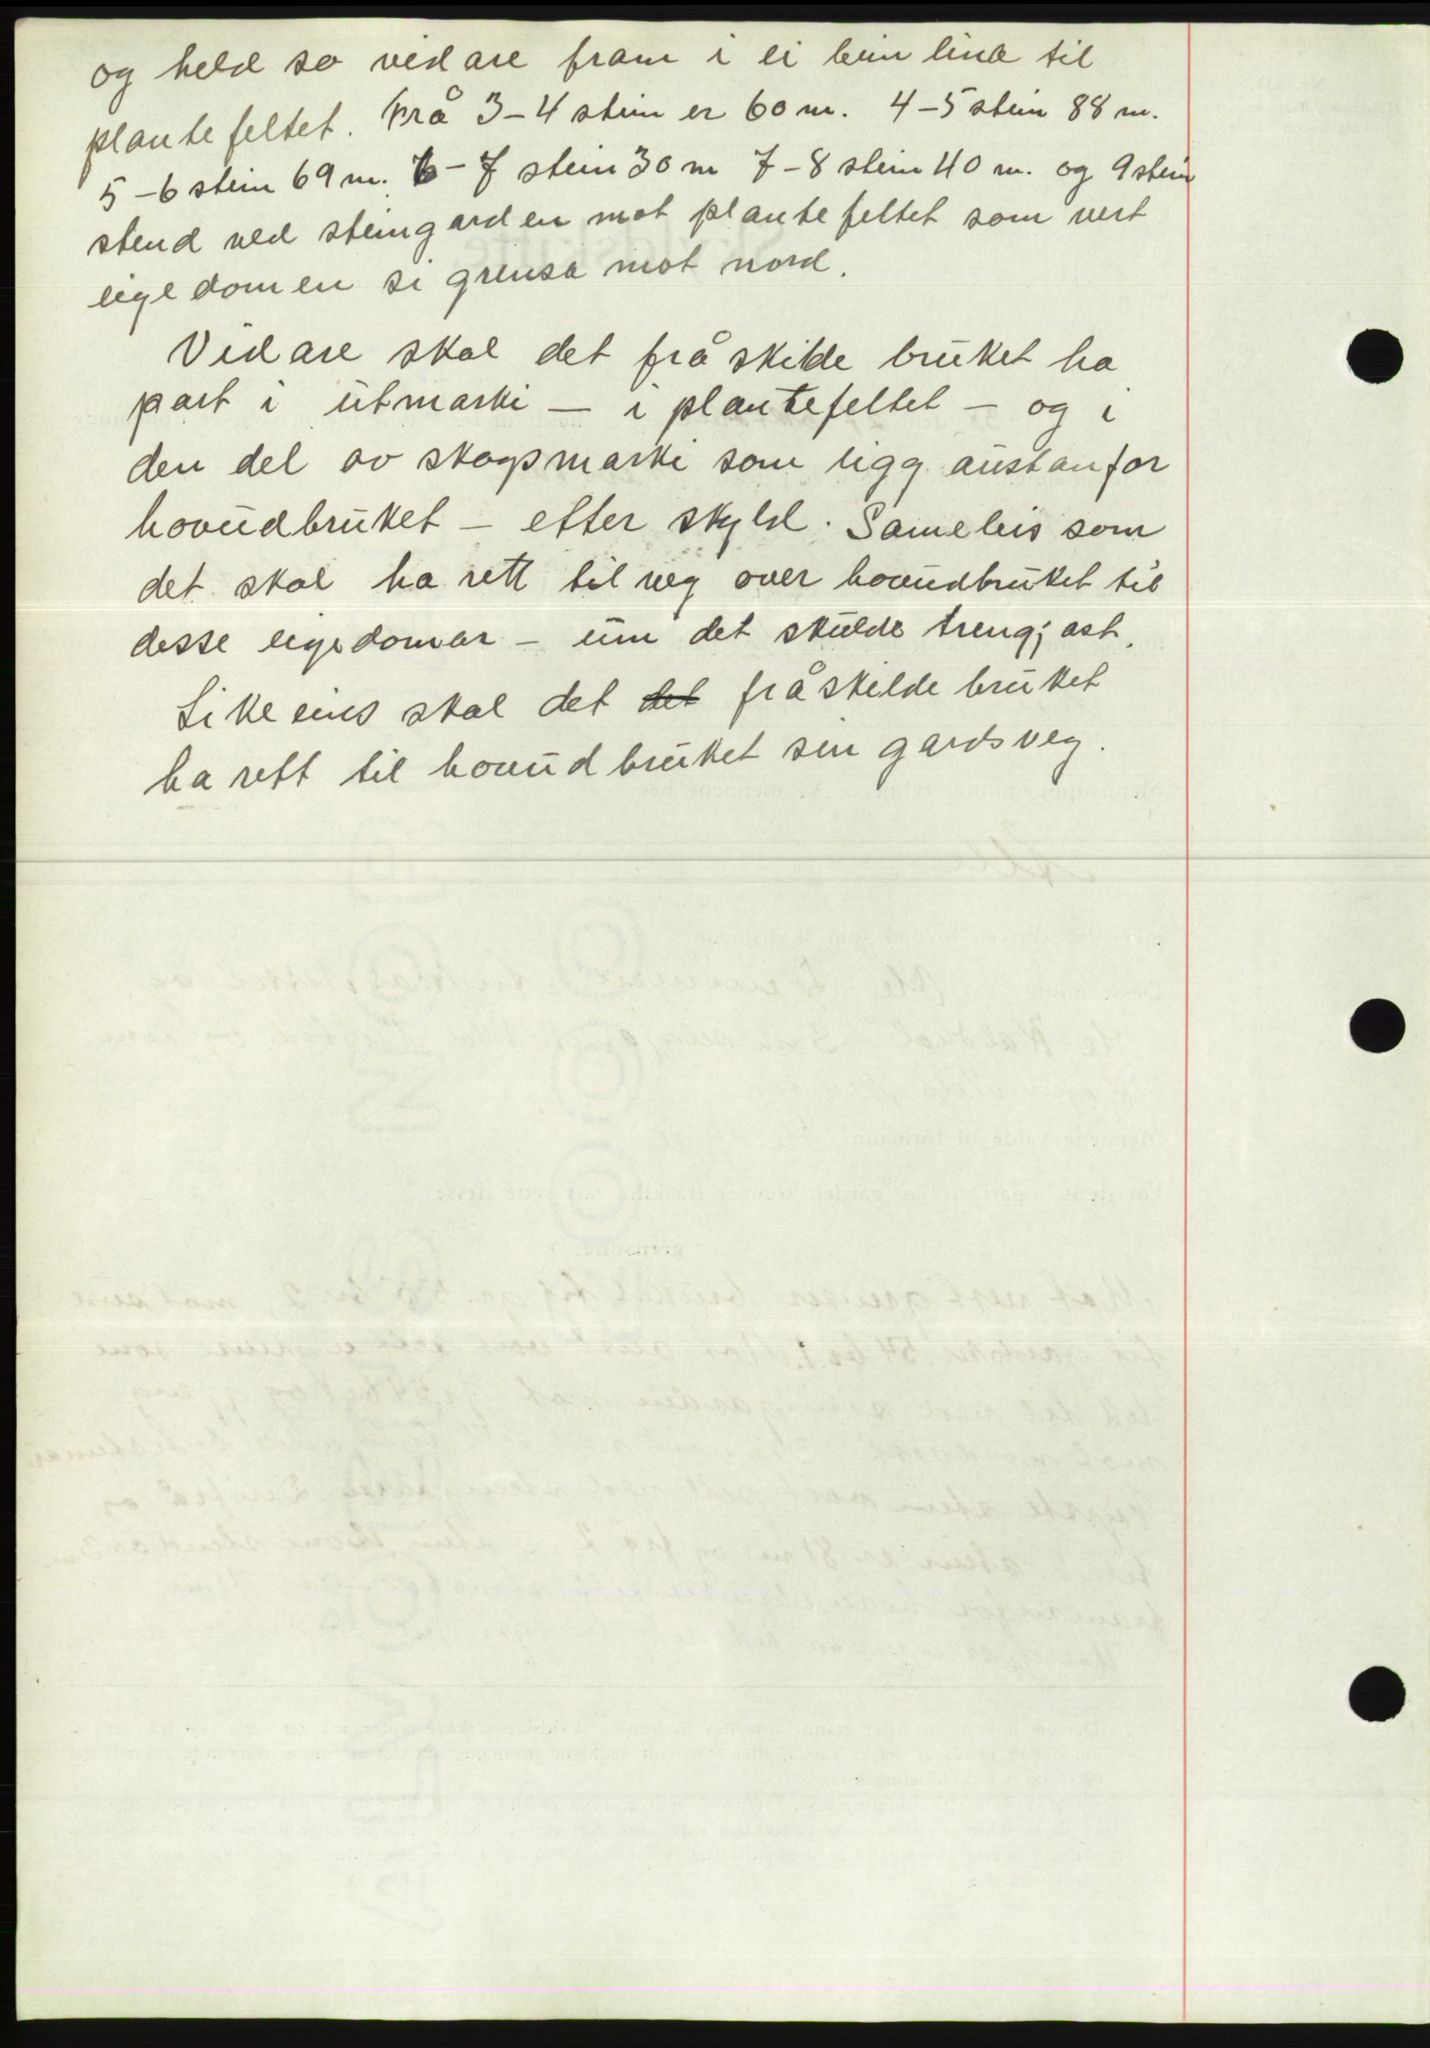 og held so vidare fram i ei bein line til
plantefeltet. Frå 3-4 stein er 60 m. 4-5 stein 88 m.
5-6 stein 69 m. 6-7 stein 30 m 7-8 stein 40 m. og 9 stein
stend ved steingarden mot plantefeltet som vert
eigedomen si grensa mot nord.
Vidare skal det fråskilde bruket ha
part i utmarki — i plantefeltet — og i
den del av skogsmarki som ligg austanfor
hovudbruket — etter skyld. Sameleis som
det skal ha rett til veg over hovudbruket til
desse eigedomar — um det skulde trengjast.
Likeeins skal det det fråskilde bruket
ha rett til hovudbruket sin gardsveg.